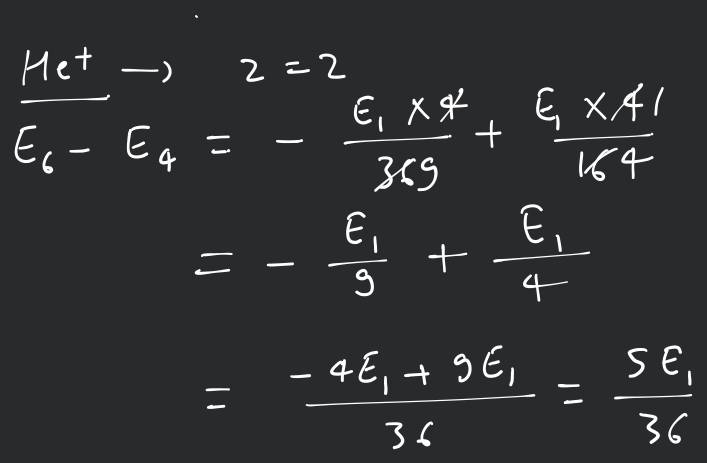 He⁺ → z = 2
E₆ - E₄ = - E₁ × 4 / 369 + E₁ × 41 / 164
= - E₁ / 9 + E₁ / 4
= - 4E₁ + 9E₁ / 36 = 5E₁ / 36